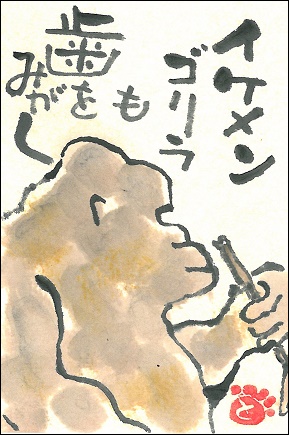 イケメン
ゴリラ
も
歯を
みがく
と